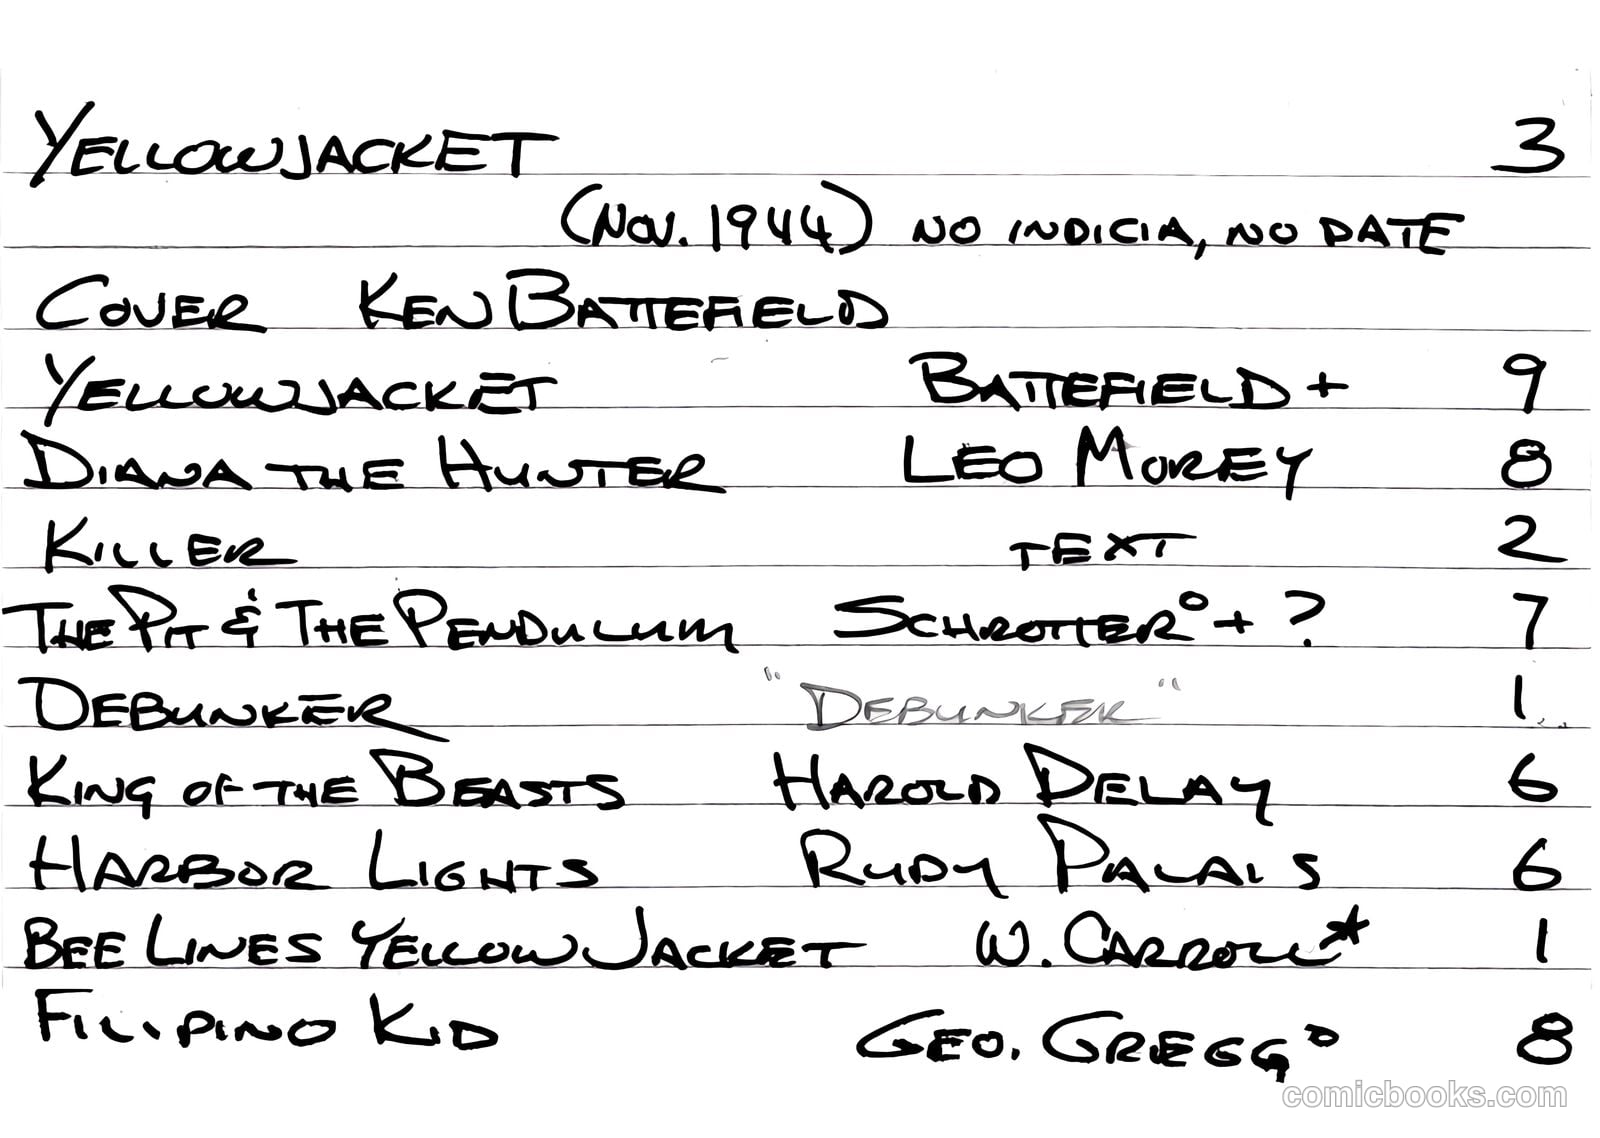 YELLOWJACKET 3
(NOV. 1944) NO INDICIA, NO DATE
COVER KEN BATTEFIELD
YELLOWJACKET BATTEFIELD + 9
DIANA THE HUNTER LEO MOREY 8
KILLER TEXT 2
THE PIT & THE PENDULUM SCHROTTER° + ? 7
DEBUNKER "DEBUNKER" 1
KING OF THE BEASTS HAROLD DELAY 6
HARBOR LIGHTS RUDY PALAIS 6
BEE LINES YELLOWJACKET W. CARROLL* 1
FILIPINO KID GEO. GREGG° 8
comicbooks.com